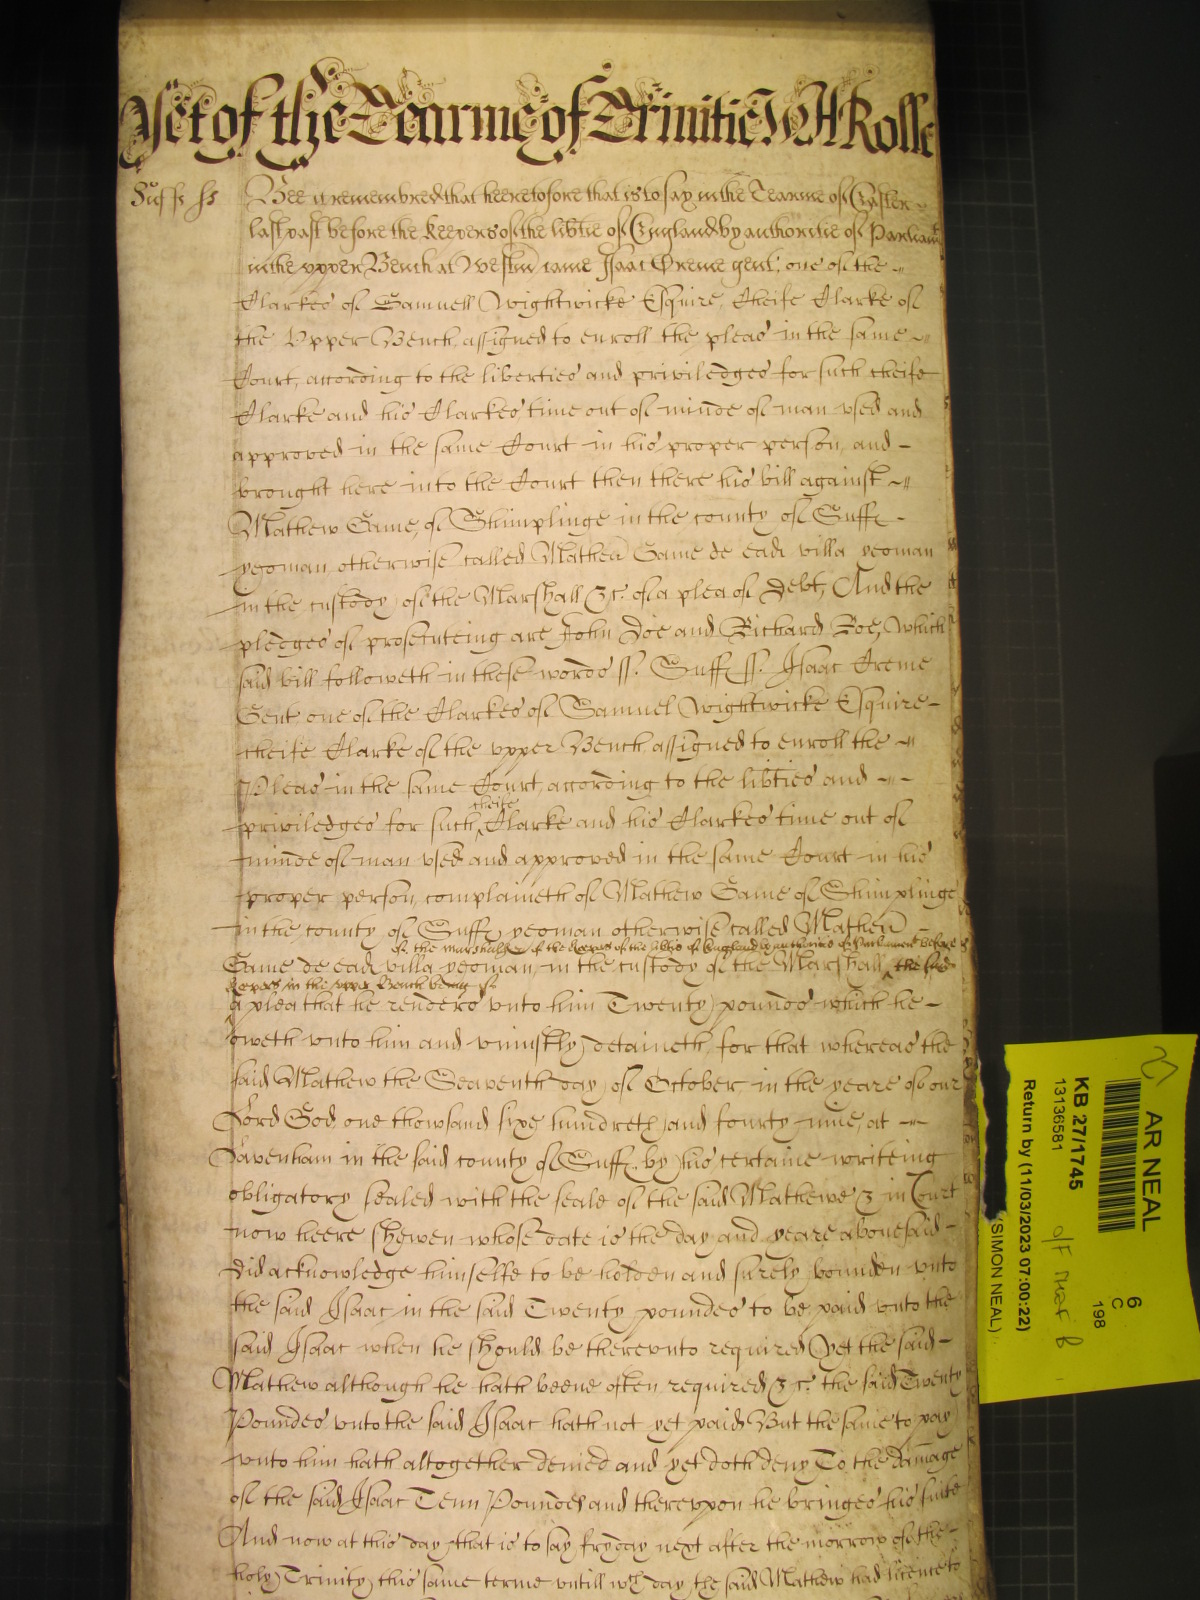 Yet of the Tearme of Trinitie Rolle
Suff ss Bee it remembred that heeretofore that is to say in the Tearme of Easter
last past before the Keepers of the libtie of England by authoritie of Parliamt
in the vpper Bench at Westm came Isaac Creme gent, one of the
Clarkes of Samuell Wightwicke Esquire, Cheife Clarke of
the Vpper Bench, assigned to enroll the pleas in the same
Court, according to the liberties and priviledges for such cheife
Clarke and his Clarkes time out of minde of man vsed and
approved in the same Court in his proper person, and
brought here into the Court then there his bill against
Mathew Game, of Shimplinge in the county of Suff
yeoman otherwise called Matheu Game de ead villa yeoman
in the custody of the Marshall &c of a plea of Debt, And the
pledges of prosecuteing are John Doe and Richard Roe, Which
said bill followeth in these words ss. Suff ss. Isaac Creme
Gent one of the Clarkes of Samuel Wightwicke Esquire
cheife Clarke of the vpper Bench, assigned to enroll the
Pleas in the same Court, according to the libties and
cheife
priviledges for such Clarke and his Clarkes time out of
minde of man vsed and approved in the same Court in his
proper person, complaineth of Mathew Game of Shimplinge
in the county of Suff yeoman otherwise called Matheu
of the Marshalsey of the Keepers of the libtie of England by authoritie of Parliament before
Game de ead villa yeoman, in the custody of the Marshall the said
Keepers in the vpper Bench being of
a plea that he renders vnto him Twenty pounds which he
oweth vnto him and vniustly detaineth, for that whereas the
said Mathew the Seaventh day of October in the yeare of our
Lord God, one thowsand sixe hundreth and fourty nine, at
Lavenham in the said county of Suff by his certaine writeing
obligatory sealed with the seale of the said Mathewe & in Court
now heere shewen whose date is the day and yeare abovesaid
did acknowledge himselfe to be holden and surely bounden vnto
the said Isaac in the said Twenty poundes to be paid vnto the
said Isaac when he should be therevnto required Yet the said
Mathew although he hath beene often required &c. the said Twenty
Poundes vnto the said Isaac hath not yet paid But the same to pay
vnto him hath altogether denied and yet doth deny To the damage
of the said Isaac Tenn Poundes and therevpon he bringes his suite
And now at this day that is to say fryday next after the morrow of the
holy Trinity this same terme vntill wch day the said Mathew had licence to
AR NEAL
KB 27/1745
13136581
Return by (11/03/2023 07:00:22)
(SIMON NEAL)
6
C
198